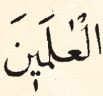 الْعٰلَمِينَ